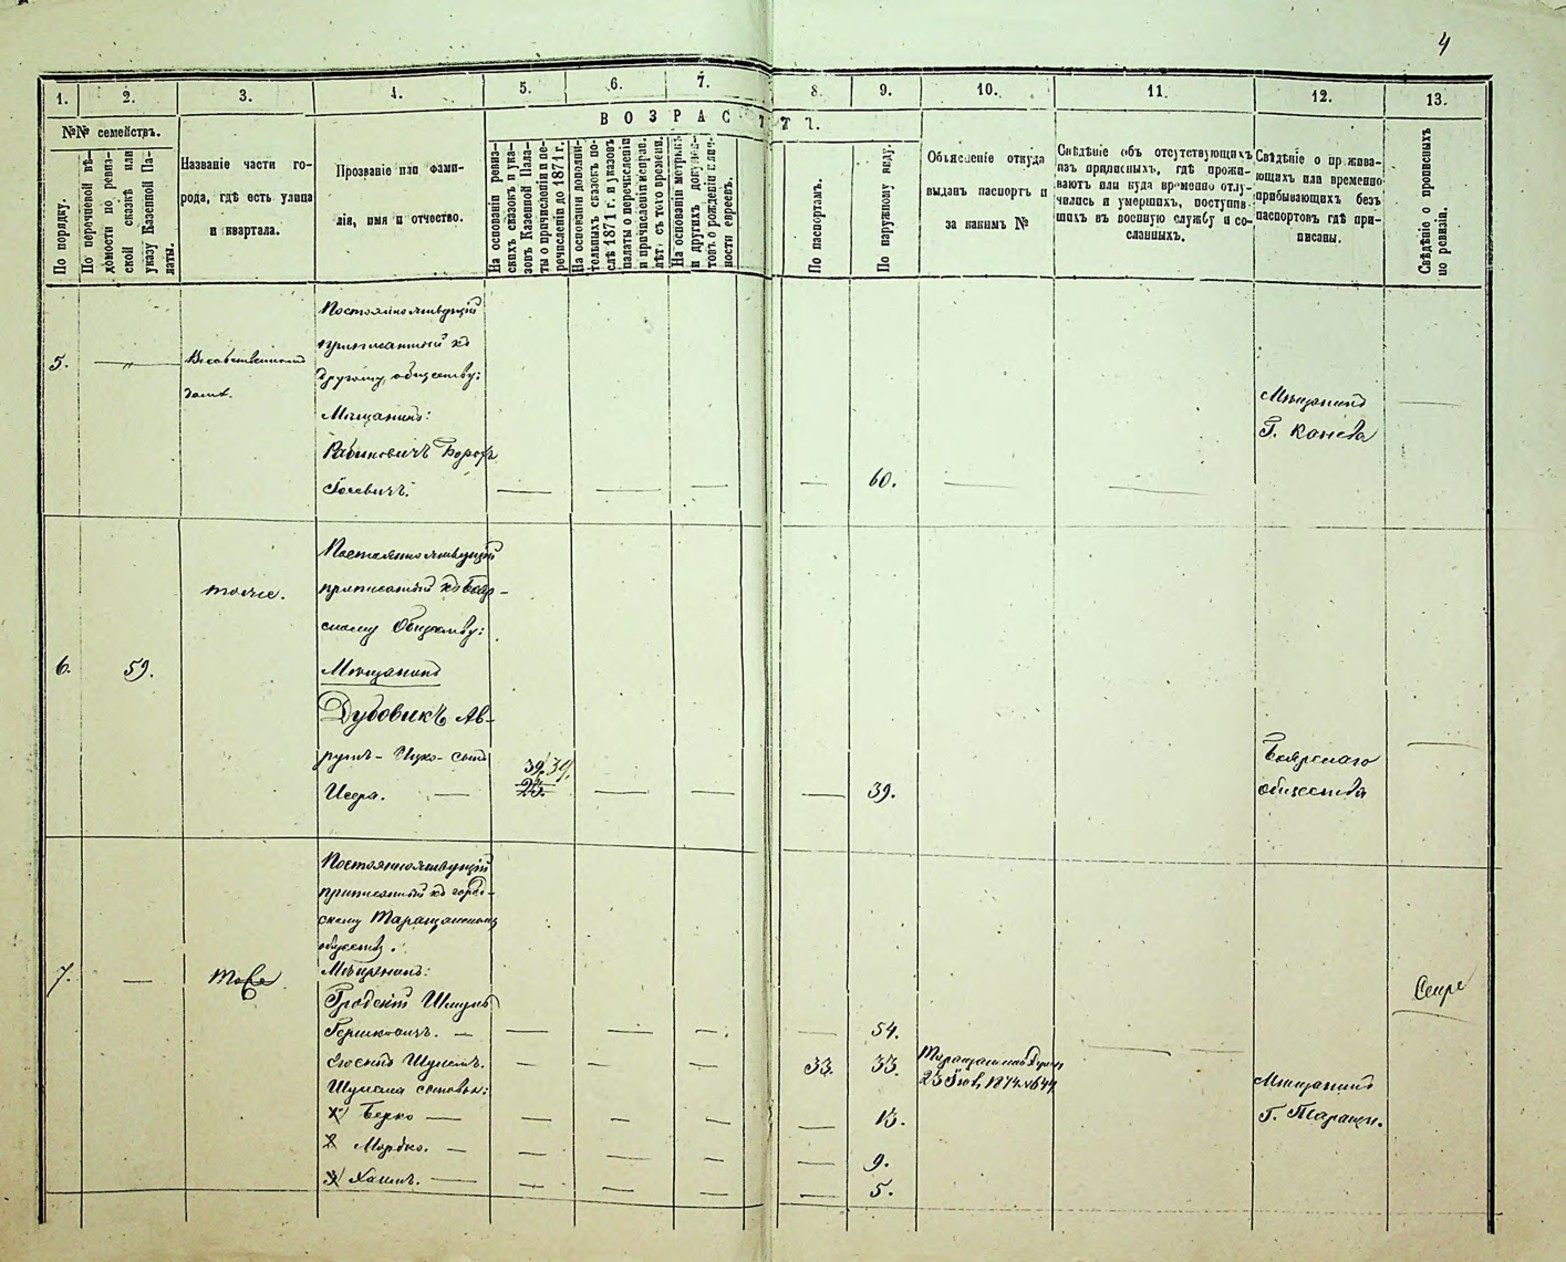 4
1.
2.
3.
4.
5.
6.
7.
8.
9.
10.
11.
12.
13.
№№ семействъ.
По порядку.
По перечневой вѣ-
домости по ревиз-
ской сказкѣ или
указу Казенной Па-
латы.
Названіе части го-
рода, гдѣ есть улица
и квартала.
Прозваніе или фами-
лія, имя и отчество.
ВОЗРАСТЪ.
На основаніи ревиз-
скихъ сказокъ и ука-
зовъ Казенной Пала-
ты о причисленіи и пе-
речисленіи до 1871 г.
На основаніи дополни-
тельныхъ сказокъ по-
слѣ 1871 г. и указовъ
палаты о перечисленіи
и причисленіи исправ.
лѣт. съ того времени.
На основаніи метрикъ
и другихъ докумен-
товъ о рожденіи лич-
ности евреевъ.
По паспортамъ.
По наружному виду.
Объясненіе откуда
выданъ паспортъ и
за какимъ №
Свѣдѣніе объ отсутствующихъ
изъ приписныхъ, гдѣ прожи-
ваютъ или куда временно отлу-
чились и умершихъ, поступив-
шихъ въ военную службу и со-
сланныхъ.
Свѣдѣніе о прожива-
ющихъ или временно
прибывающихъ безъ
паспортовъ гдѣ при-
писаны.
Свѣдѣніе о прописныхъ
по ревизіи.
5.
— „ —
В собственномъ
домѣ.
Постоянно живущій
приписанный къ
другому обществу:
Мѣщанинъ:
Рабиновичъ Борохъ
60.
Мѣщанинъ
Г. Канева
6.
59.
тоже.
Постоянно живущій
приписанный къ Бояр-
скому Обществу:
Мѣщанинъ
Дубовикъ Ав-
румъ-Ицко-сынъ
Исера. —
39. 39.
25.
39.
Боярскаго
общества
7.
—
тоже
Постоянно живущій
приписанный къ город-
скому Таращанскому
обществу.
Мѣщанинъ:
Гродскій Шмуль
Гершковичъ. —
54.
Іосифъ Шулимъ.
33.
33.
23 1874 № 644
Шулима сыновья:
1/ Берко —
13.
2 Мордко. —
9.
3/ Хаимъ. —
5.
Мѣщанинъ
Г. Таращи.